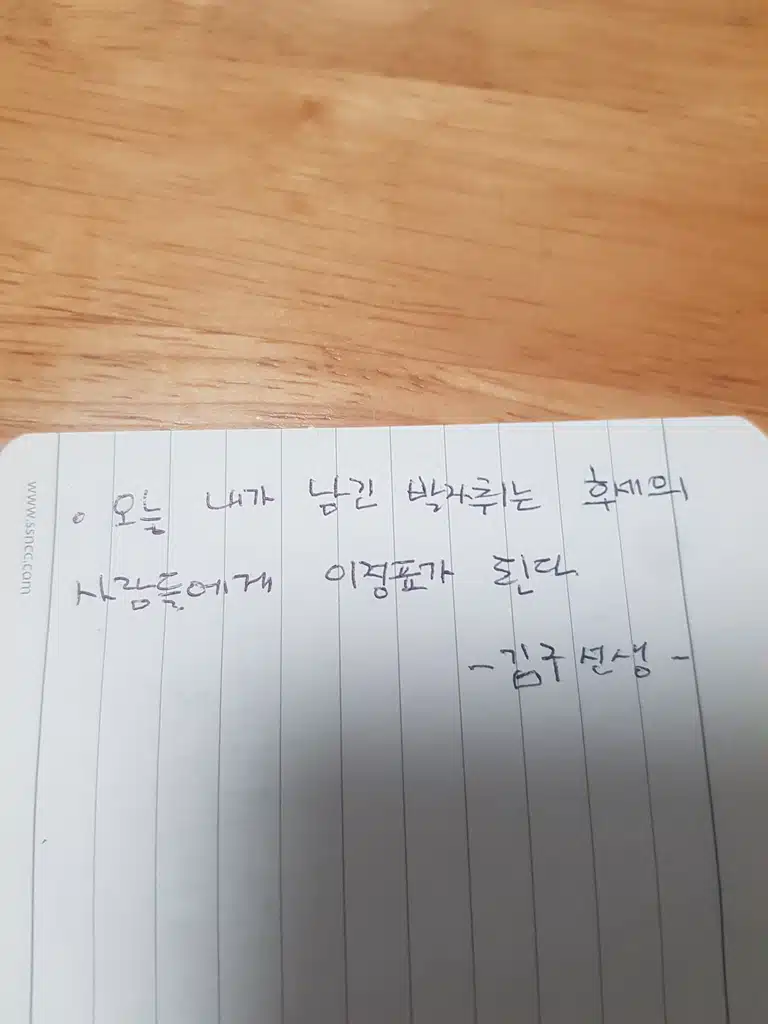 www.ssncc.com
• 오늘 내가 남긴 발자취는 후세의
사람들에게 이정표가 된다.
- 김구 선생 -